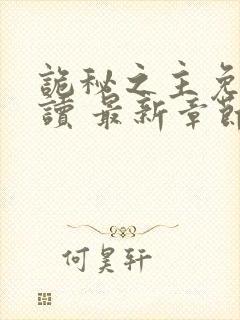 詭秘之主免
讀 最新章節
何昊轩